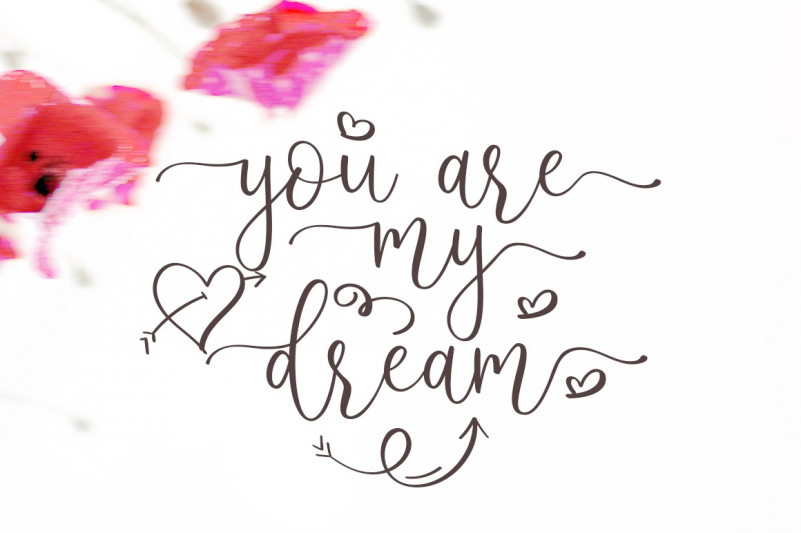 you are
my
dream